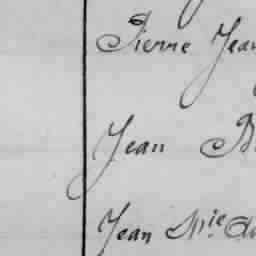 Pierre Jean
Jean
Jean Mie